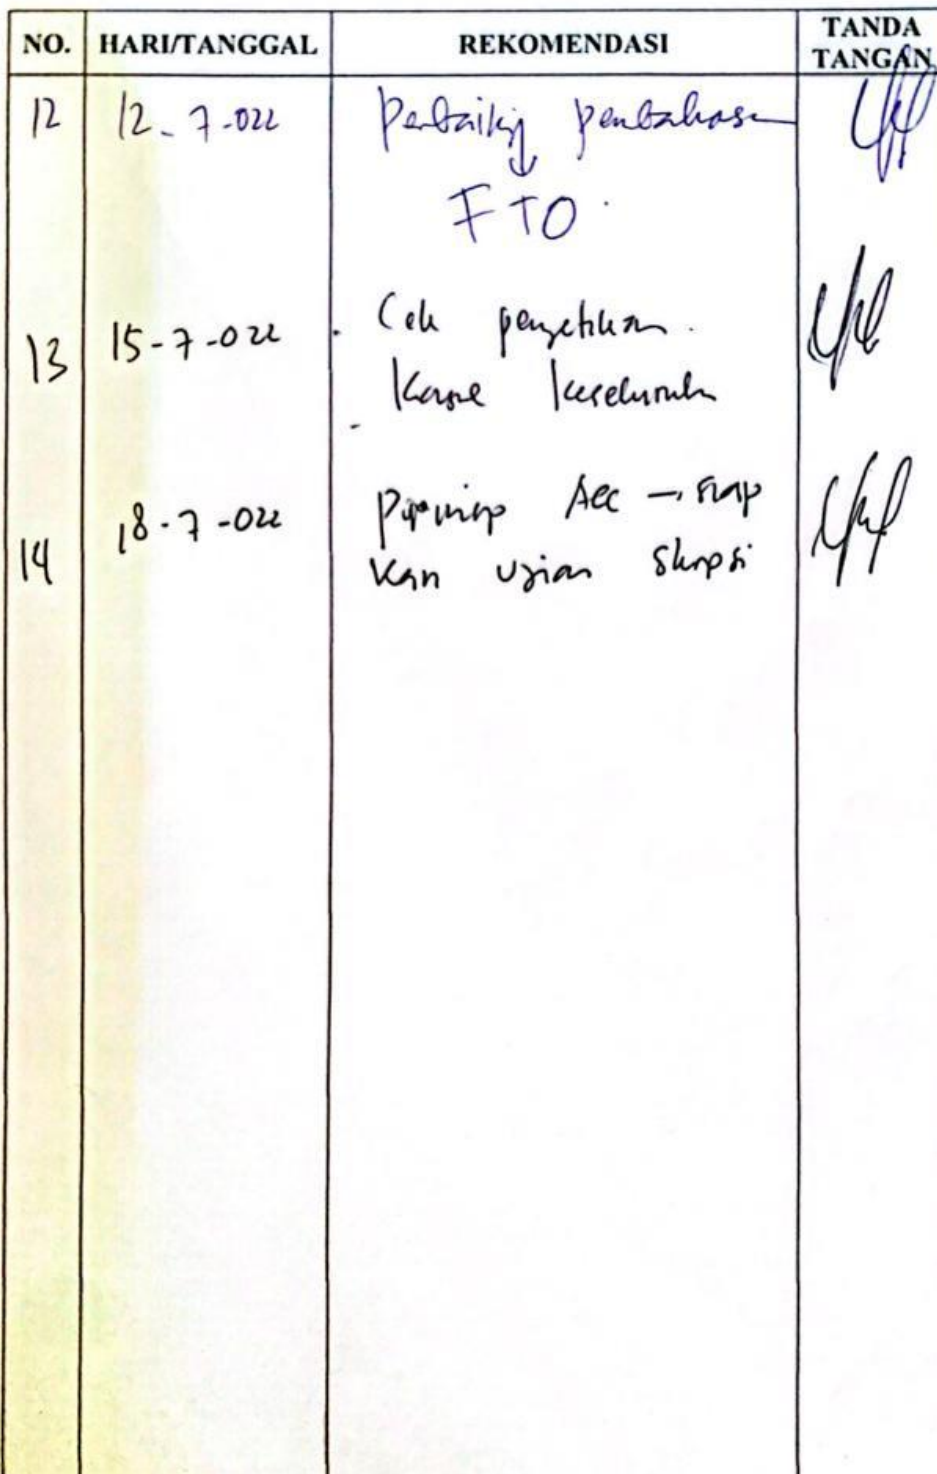 NO. HARI/TANGGAL REKOMENDASI TANDA TANGAN
12 12-7-022 Perbaiki pembahasan
FTO
13 15-7-022 Cek pengetikan.
keseluruhan
14 18-7-022 Acc → siap
kan ujian skripsi